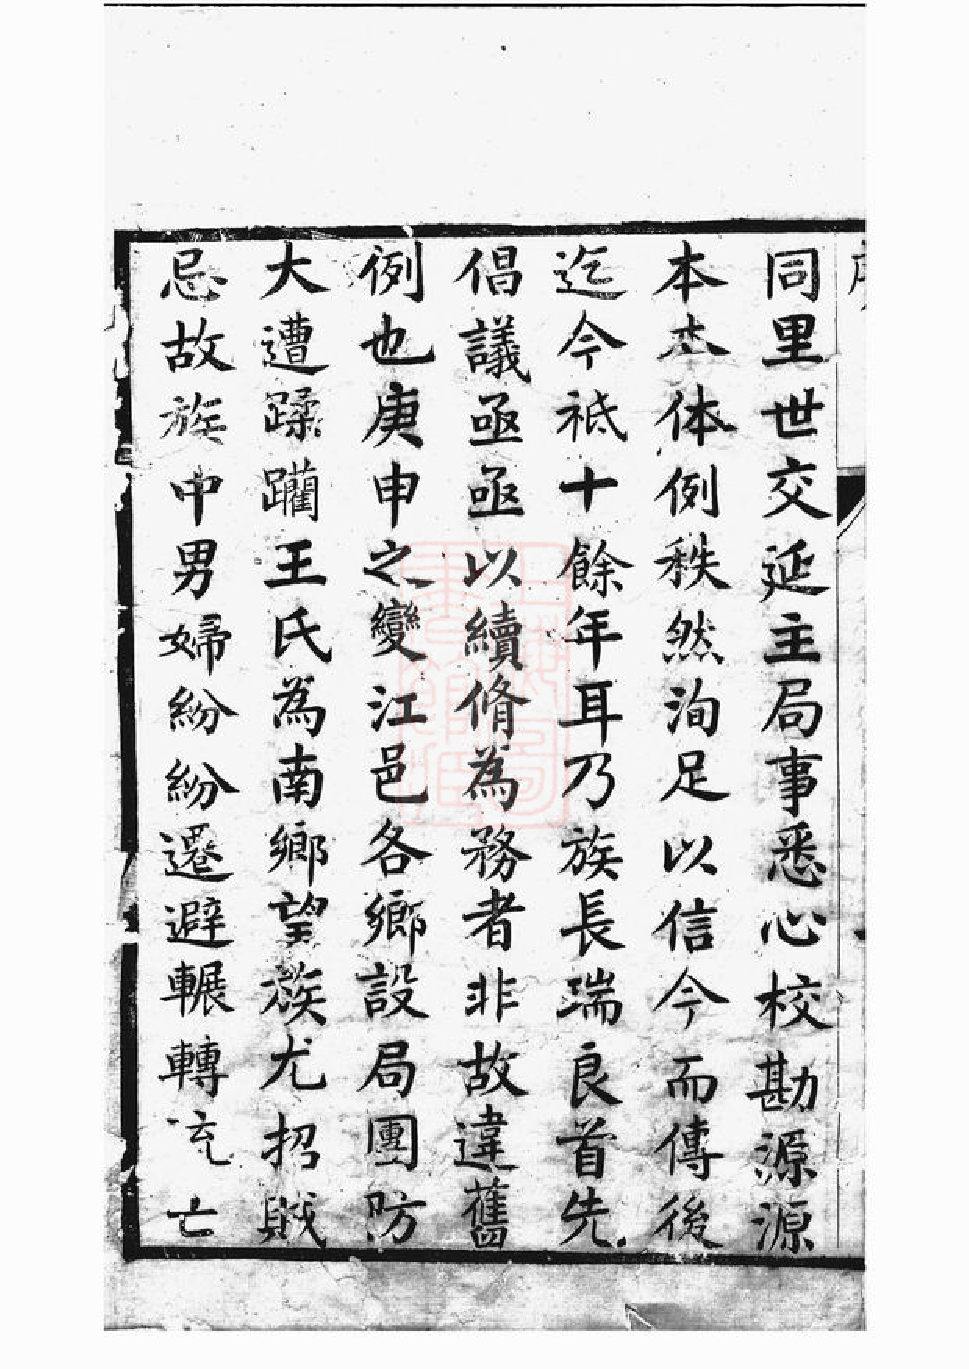 同里世交延主局事悉心校勘源源
本本体例秩然洵足以信今而傳後
迄今祗十餘年耳乃族長瑞良首先
倡議亟亟以續脩為務者非故違舊
例也庚申之變江邑各鄉設局團防
大遭蹂躪王氏為南鄉望族尤招賊
忌故族中男婦紛紛遷避輾轉流亡